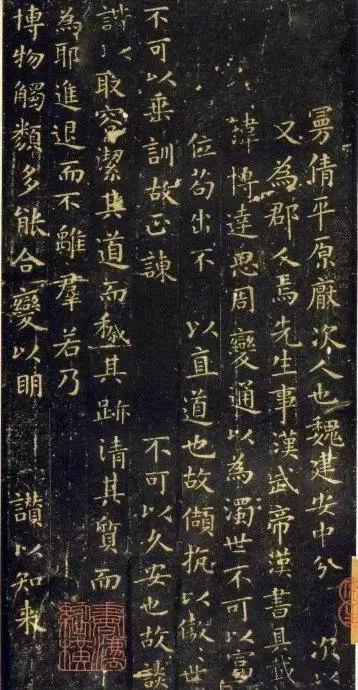 曼倩平原厭次人也魏建安中分 次以
又為郡人焉先生事漢武帝漢書具載
瑋博達思周變通以為濁世不可以富
位苟出不 以直道也故 抗以傲世
不可以垂訓故正諫 不可以久安也故談
諧以取容潔其道而穢其跡清其質而
為耶進退而不離羣若乃
博物觸類多能合變以明 讚以知来